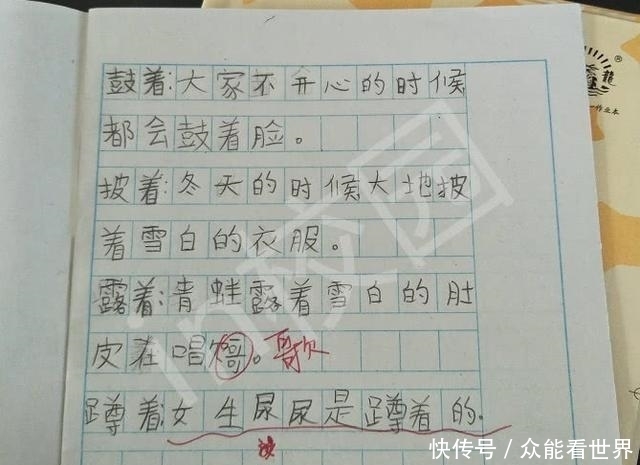 鼓着:大家不开心的时候
都会鼓着脸。
披着:冬天的时候大地披
着雪白的衣服。
露着:青蛙露着雪白的肚
皮在唱。歌
蹲着:女生尿尿是蹲着的.
龍
作业本
in校园
快传号/众能看世界